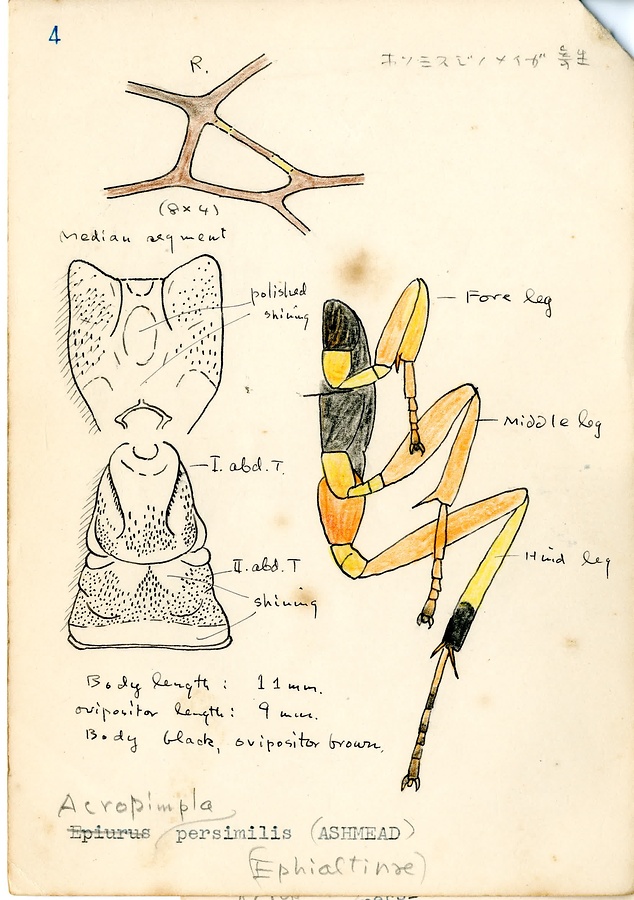 4
R.
ホソミスジノメイガ 寄生
(8×4)
Median segment
polished
shining
Fore leg
Middle leg
I. abd. T.
II. abd. T
Hind leg
shining
Body length : 11 mm.
ovipositor length : 9 mm.
Body black, ovipositor brown.
Acropimpla
Epiurus persimilis (ASHMEAD)
(Ephialtinae)